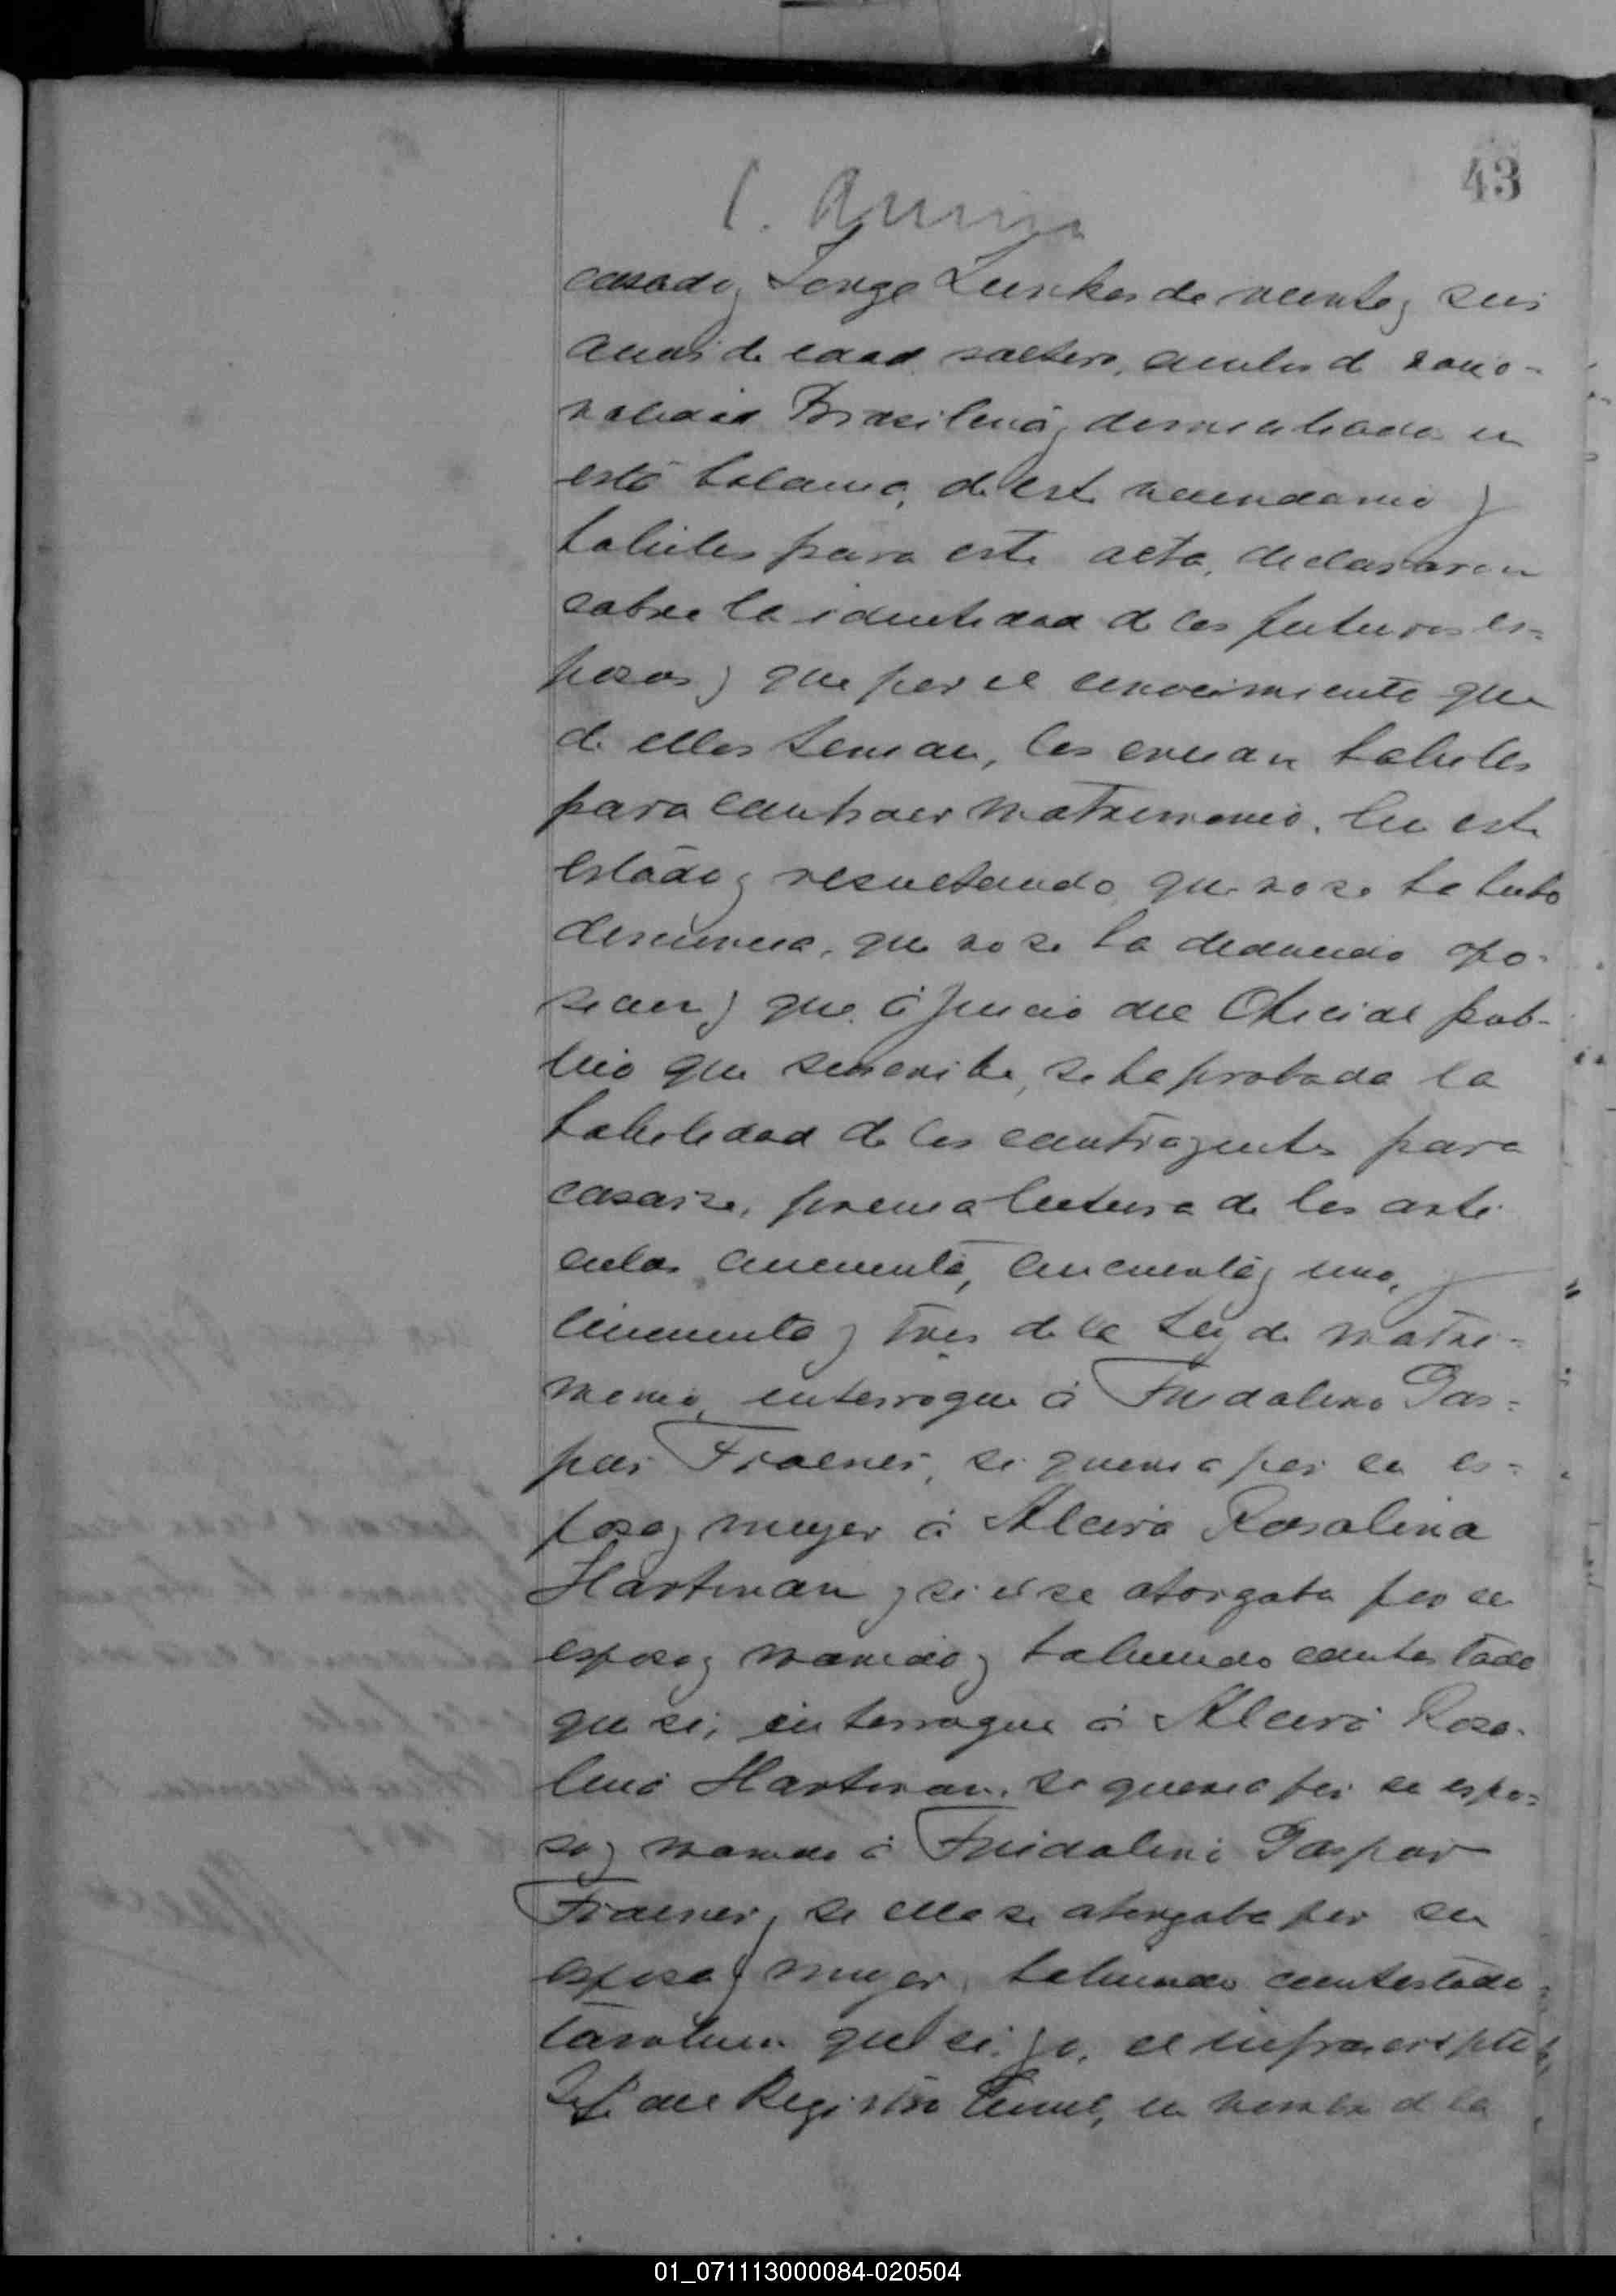 43
casado y Jorge Lunkes de veinte y seis
años de edad soltero, ambos de nacio-
nalidad Brasileña, domiciliados en
esta Colonia, de este vecindario y
habiles para este acto, declararon
sobre la identidad de los futuros es=
posos y que por el conocimiento que
de ellos tenian, los creian habiles
para contraer matrimonio. En este
estado y resultando que no se ha hecho
denuncia, que no se ha deducido opo-
sicion y que á juicio del Oficial pub-
lico que suscribe, se ha probado la
habilidad de los contrayentes para
casarse, previa lectura de los arti
culos cincuenta, cincuenta y uno, y
cincuenta y tres de la Ley de matri=
monio, interrogue á Fridalino Gas=
par Fraener, si queria por su es=
posa y muger á Alcira Rosalina
Hartman y si él se otorgaba por su
esposo y marido y habiendo contestado
que si, interrogue á Alcira Rosa-
lina Hartman, si queria por su espo=
so y marido á Fridalino Gaspar
Fraener, si ella se otorgaba por su
esposa y muger, habiendo contestado
tambien que si. Yo, el infrascripto
Jefe del Registro Civil, en nombre de la
01_071113000084-020504